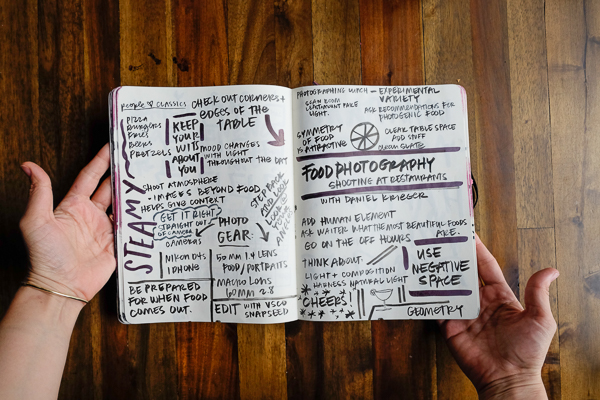 people ♡ classics
PIZZA
BURGERS
FRIES
BEERS
PRETZELS
CHECK OUT CORNERS +
EDGES OF THE
TABLE
KEEP
YOUR
WITS
ABOUT
YOU
MOOD CHANGES
WITH LIGHT
THROUGHOUT THE DAY
STEAMY
SHOOT ATMOSPHERE
- IMAGES BEYOND FOOD
HELPS GIVE CONTEXT
GET IT RIGHT
STRAIGHT OUT
OF CAMERA
STEP BACK
AND LOOK
LOOK @
YOUR
ANGLES
CAMERAS
NIKON D45
IPHONE
PHOTO
GEAR:
50MM 1.4 LENS
FOOD/PORTRAITS
MACRO LENS
60MM 2.8
BE PREPARED
FOR WHEN FOOD
COMES OUT.
EDIT WITH VSCO
SNAPSEED
PHOTOGRAPHING LUNCH - EXPERIMENTAL
VARIETY
SCAN ROOM
LIGHT.
ASK RECOMMENDATIONS FOR
PHOTOGENIC FOOD
SYMMETRY
OF FOOD
IS ATTRACTIVE
CLEAR TABLE SPACE
ADD STUFF
CLEAN SLATE
FOOD PHOTOGRAPHY
SHOOTING AT RESTAURANTS
WITH DANIEL KRIEGER
ADD HUMAN ELEMENT
ASK WAITER WHAT THE MOST BEAUTIFUL FOODS
ARE.
GO ON THE OFF HOURS
THINK ABOUT:
LIGHT + COMPOSITION
HARNESS NATURAL LIGHT
USE
NEGATIVE
SPACE
CHEERS!
GEOMETRY